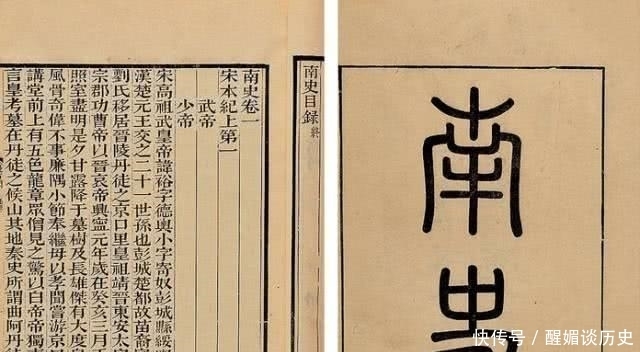 南史
南史目錄 終
南史卷一
宋本紀上第一
武帝
少帝
宋高祖武皇帝諱裕字德輿小字寄奴彭城縣綏
漢楚元王交之二十一世孫也彭城楚都故苗裔
劉氏移居晉陵丹徒之京口里皇祖靖晉東安太
宗郡功曹帝以晉哀帝興寧元年歲在癸亥三月
照室盡明是夕甘露降于墓樹及長雄傑有大度
風骨奇偉不事廉隅小節奉繼母以孝聞嘗游京
講堂前上有五色龍章衆僧見之驚以白帝帝獨
言皇考墓在丹徒之候山其地秦史所謂曲阿丹
快传号/醒媚谈历史